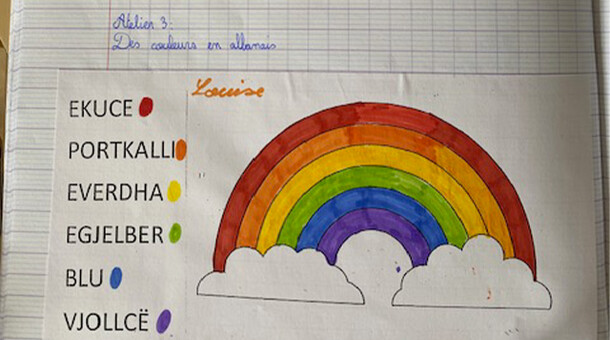 Atelier 3:
Des couleurs en albanais
Louise
EKUCE
PORTKALLI
EVERDHA
EGJELBER
BLU
VJOLLCË